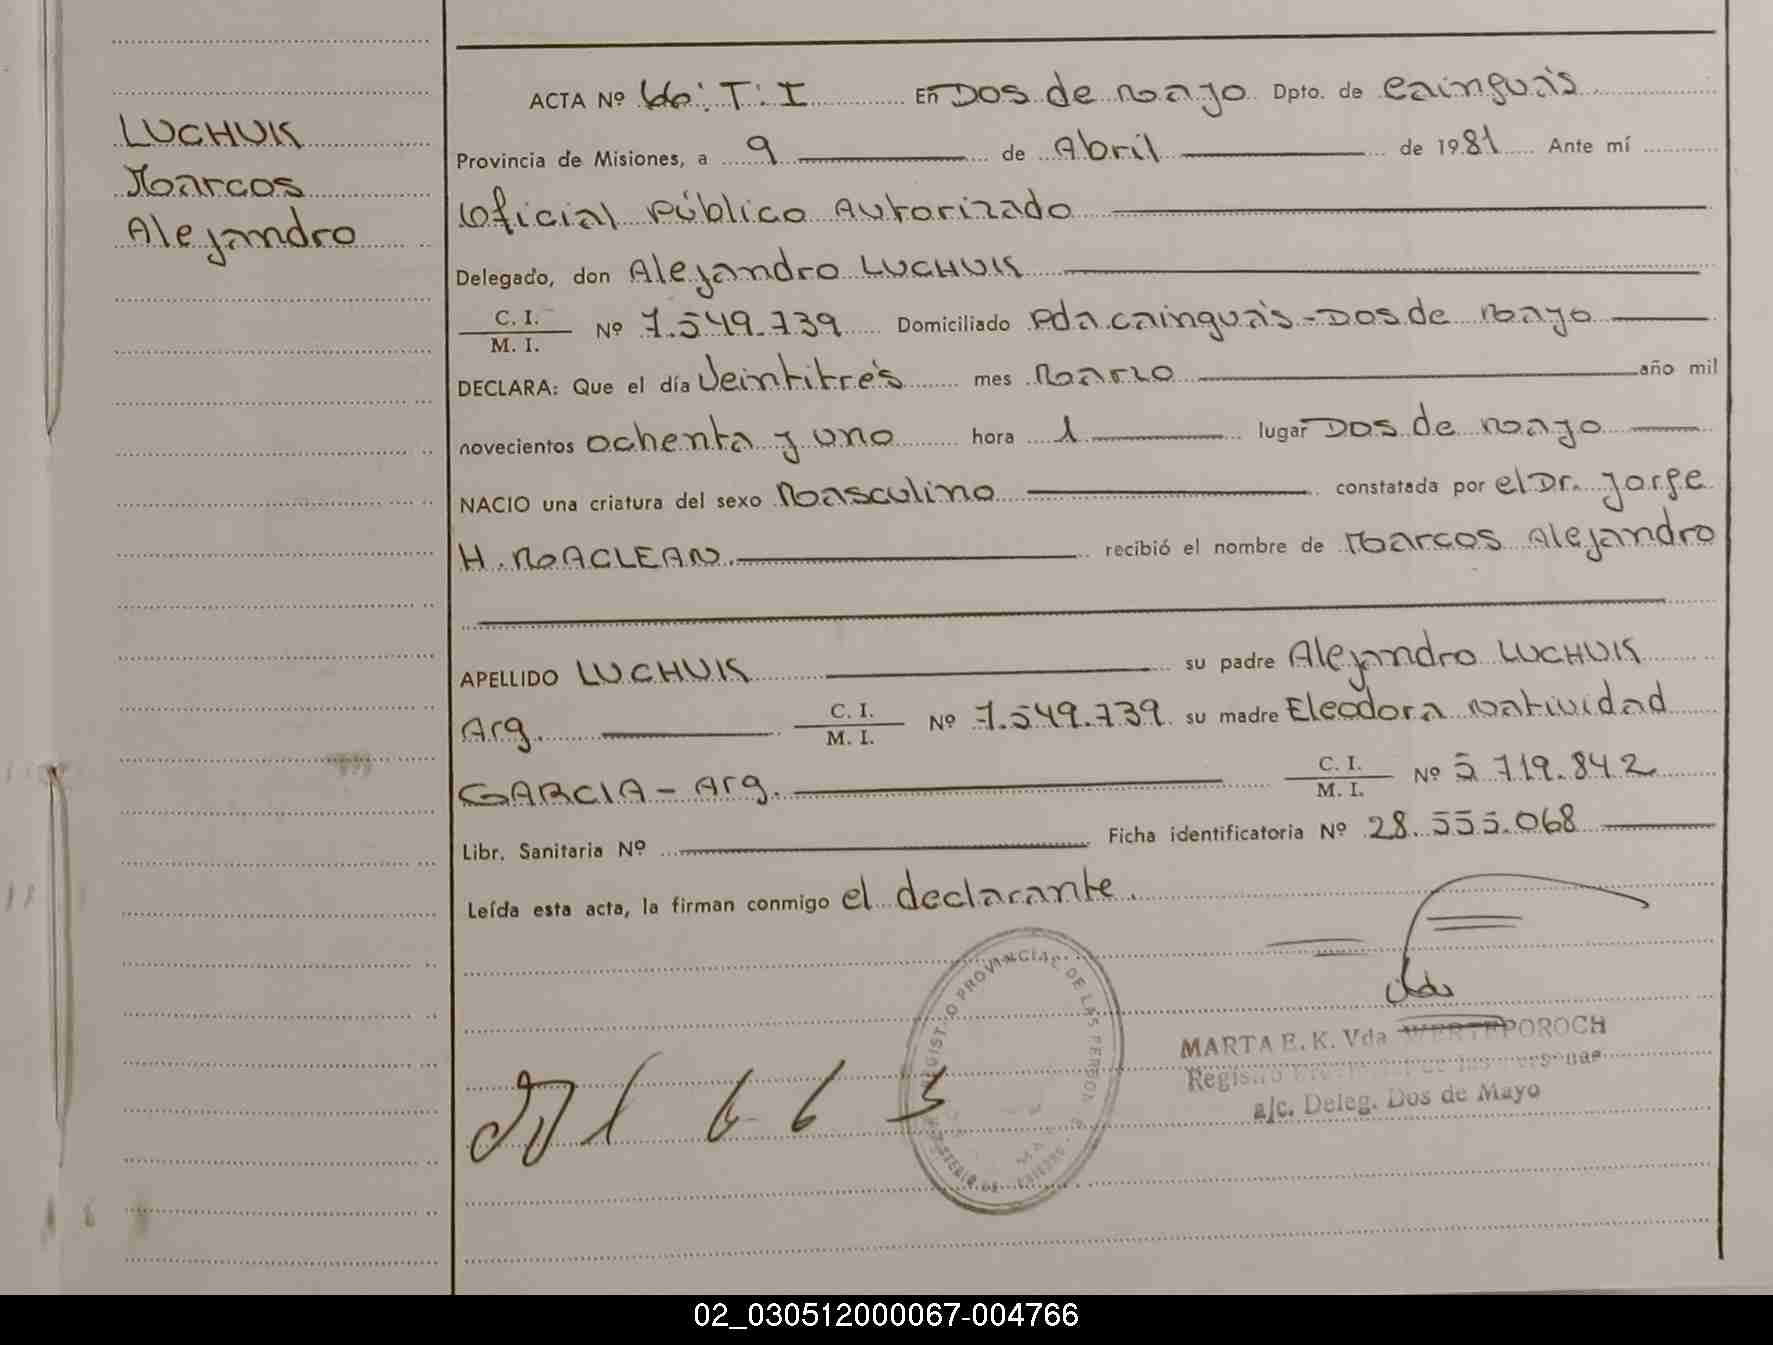 LUCHUK
Marcos
Alejandro
ACTA Nº 66: T: I En Dos de Mayo Dpto. de Cainguás
Provincia de Misiones, a 9 de Abril de 1981 Ante mí
Oficial Público Autorizado
Delegado, don Alejandro LUCHUK
C. I.
M. I. Nº 7.549.739 Domiciliado Pda. Cainguás - Dos de Mayo
DECLARA: Que el día Veintitrés mes Marzo año mil
novecientos ochenta y uno hora 1 lugar Dos de Mayo
NACIO una criatura del sexo Masculino constatada por el Dr. Jorge
H. MACLEAN. recibió el nombre de Marcos Alejandro
APELLIDO LUCHUK su padre Alejandro LUCHUK
Arg. C. I.
M. I. Nº 7.549.739 su madre Eleodora Natividad
GARCIA - Arg. C. I.
M. I. Nº 5.719.842
Libr. Sanitaria Nº Ficha identificatoria Nº 28.555.068
Leída esta acta, la firman conmigo el declarante.
REGISTRO PROVINCIAL DE LAS PERSONAS
MARTA E. K. Vda WERTEPOROCH
Registro Provincial de las Personas
a/c. Deleg. Dos de Mayo
02_030512000067-004766